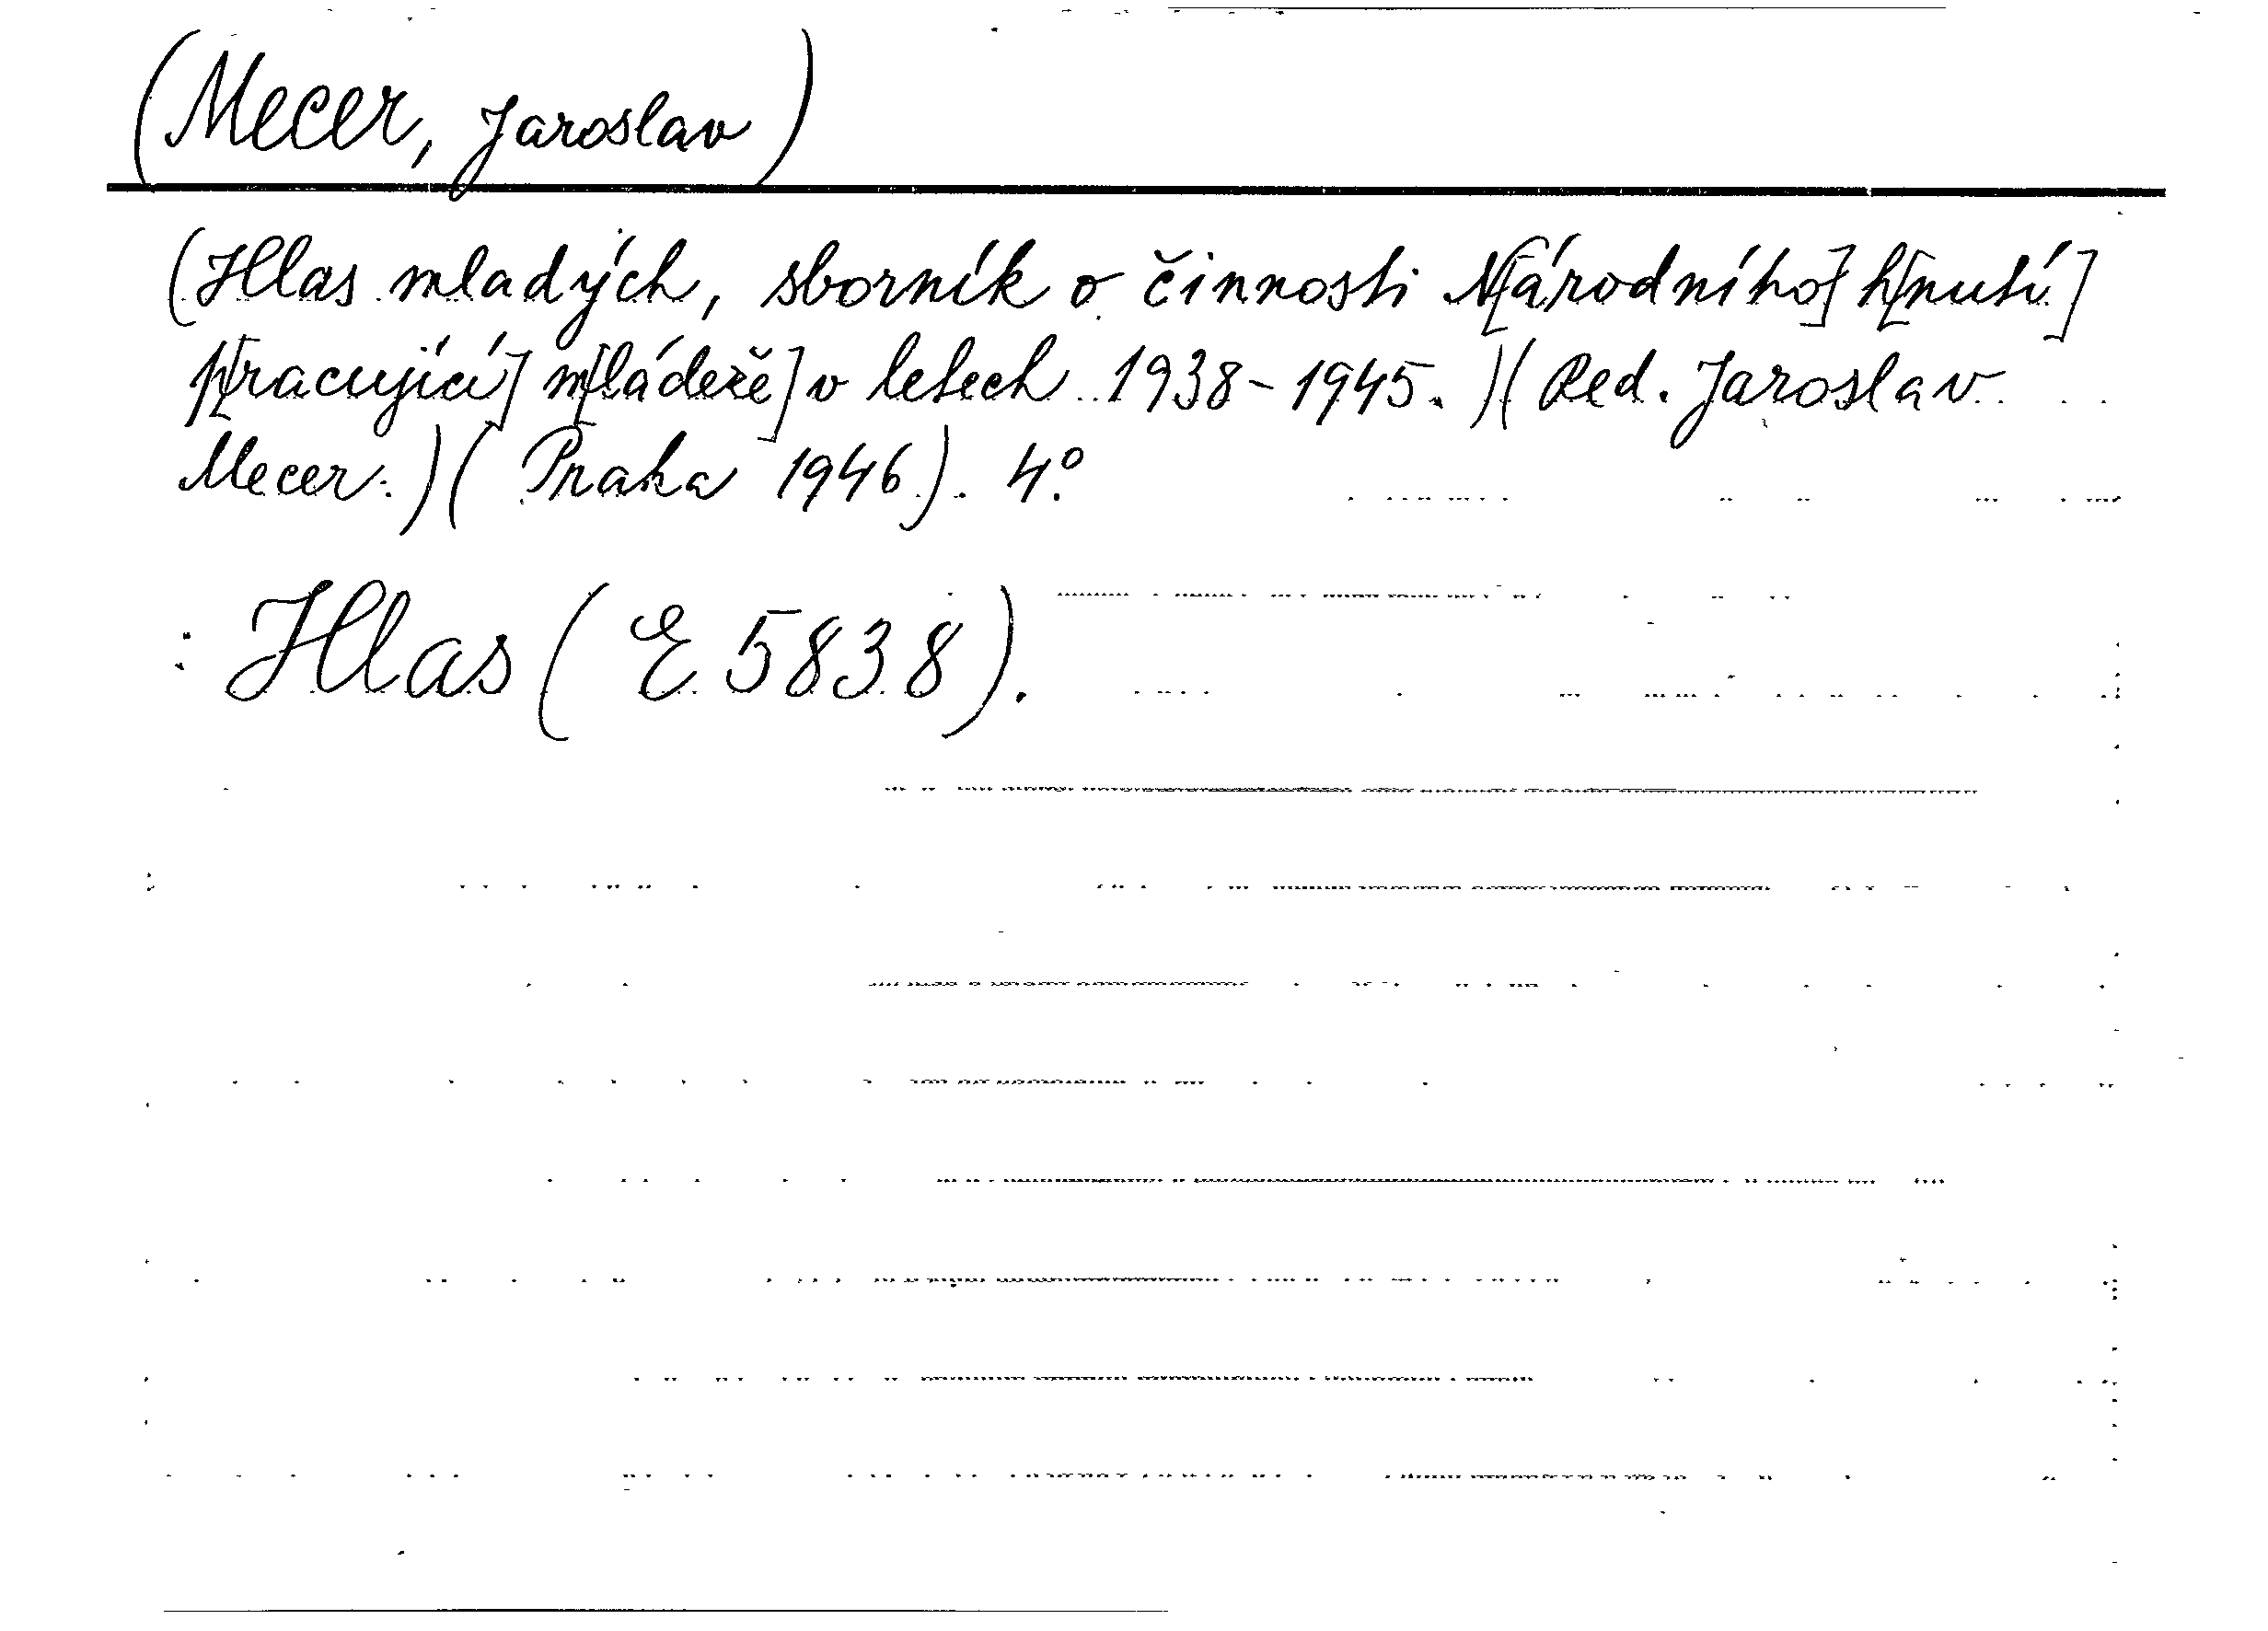 (Mecer, Jaroslav)
(Hlas mladých, sborník o činnosti N[árodního] h[nutí]
p[racující] m[ládeže] v letech 1938-1945.)(Red. Jaroslav
Mecer.)(Praha 1946). 4°.
: Hlas (E 5838).